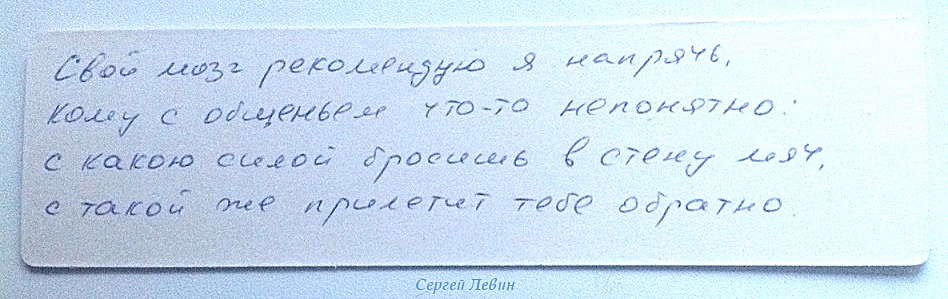 Свой мозг рекомендую я напрячь,
кому с общеньем что-то непонятно:
с какою силой бросишь в стену мяч,
с такой же прилетит тебе обратно.
Сергей Левин